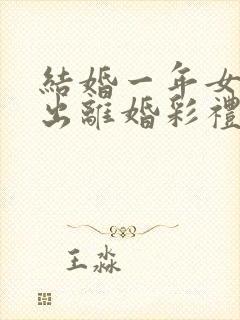 結婚一年女
出離婚彩禮
王淼